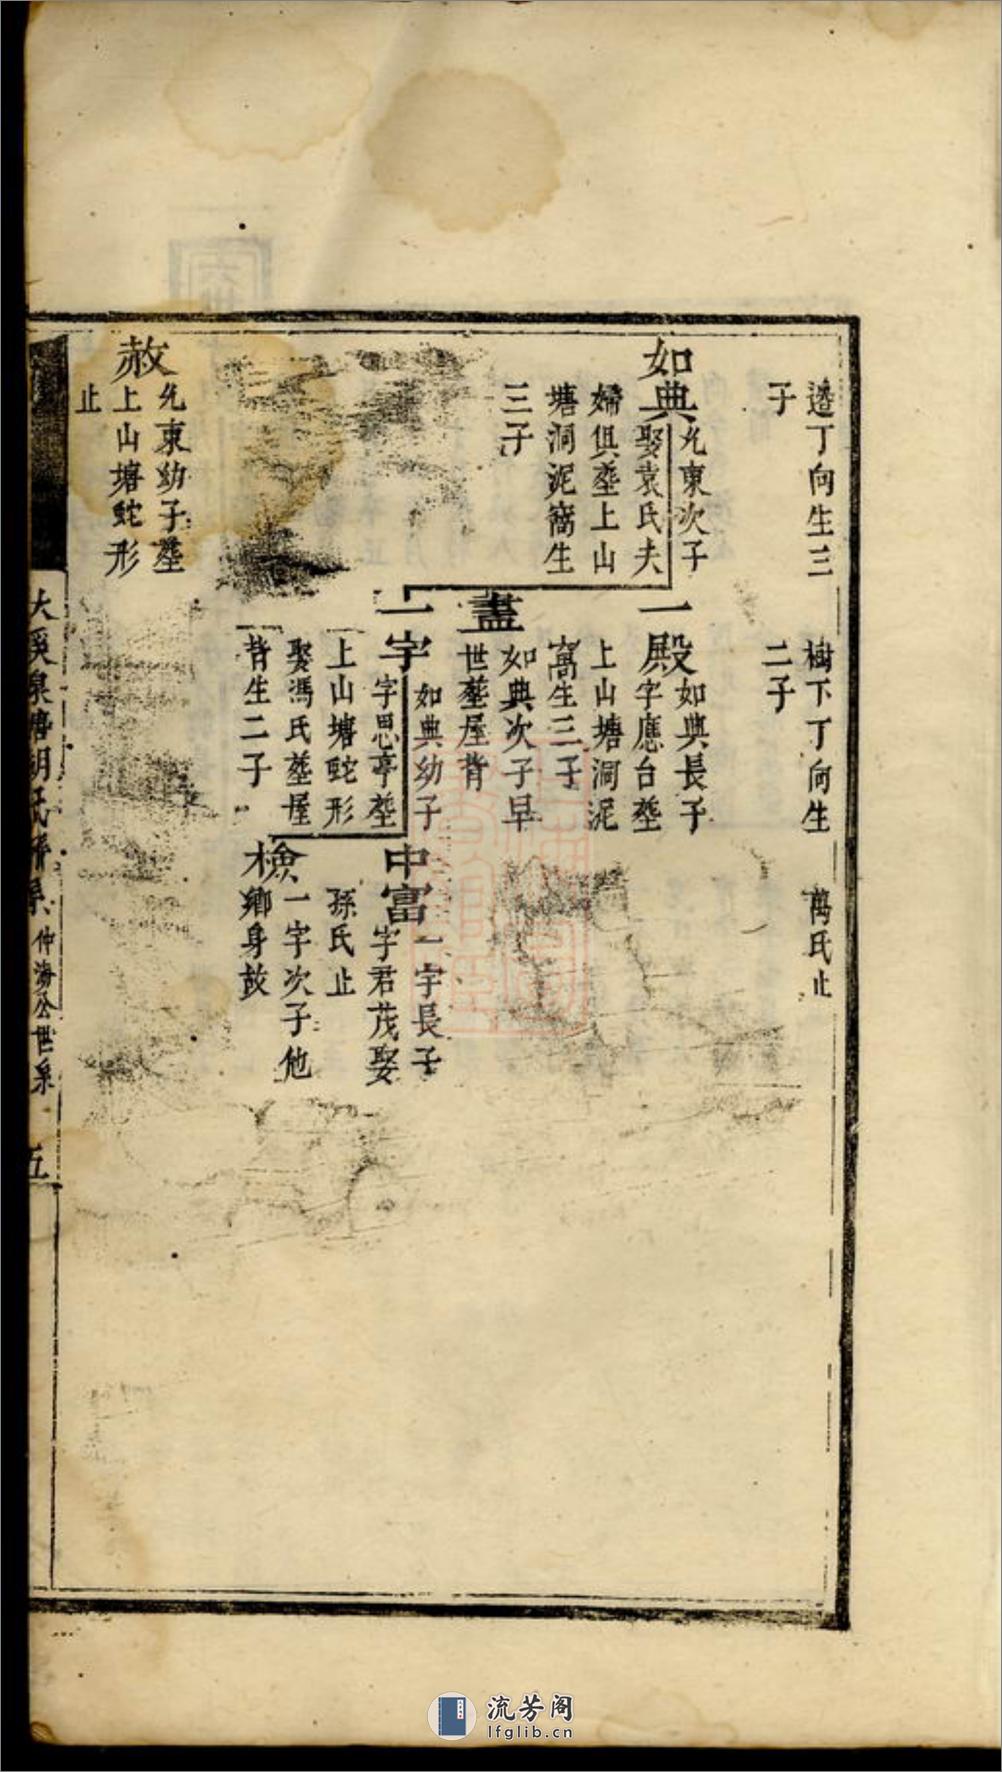 邉丁向生三
子
樹下丁向生
二子
萬氏止
如典
允東次子
娶袁氏夫
婦俱塟上山
塘洞泥窩生
三子
一殿
如典長子
字應台塟
上山塘洞泥
窩生三子
盡
如典次子早
世塟屋背
一字
如典幼子
字思亭塟
上山塘蛇形
娶馮氏塟屋
背生二子
中富
一字長子
字君茂娶
孫氏止
檢
一字次子他
鄉身故
赦
允東幼子塟
上山塘蛇形
止
仲海公世系
五
流芳阁
lfglib.cn